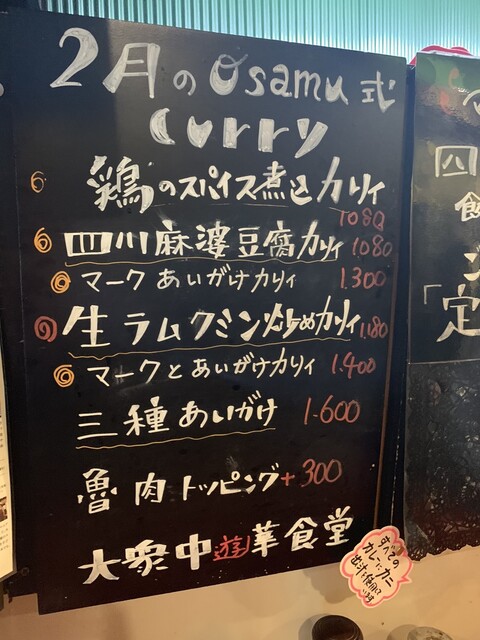 2月のOsamu式
curry
鶏のスパイス煮込カリィ
1080
四川麻婆豆腐カリィ 1080
マークあいがけカリィ 1.300
生ラムクミン炒めカリィ 1,180
マークとあいがけカリィ 1.400
三種あいがけ 1.600
魯肉トッピング+300
大衆中遊華食堂
すべての
カレーにカニ
出汁を使用して
います
四
飯
「定